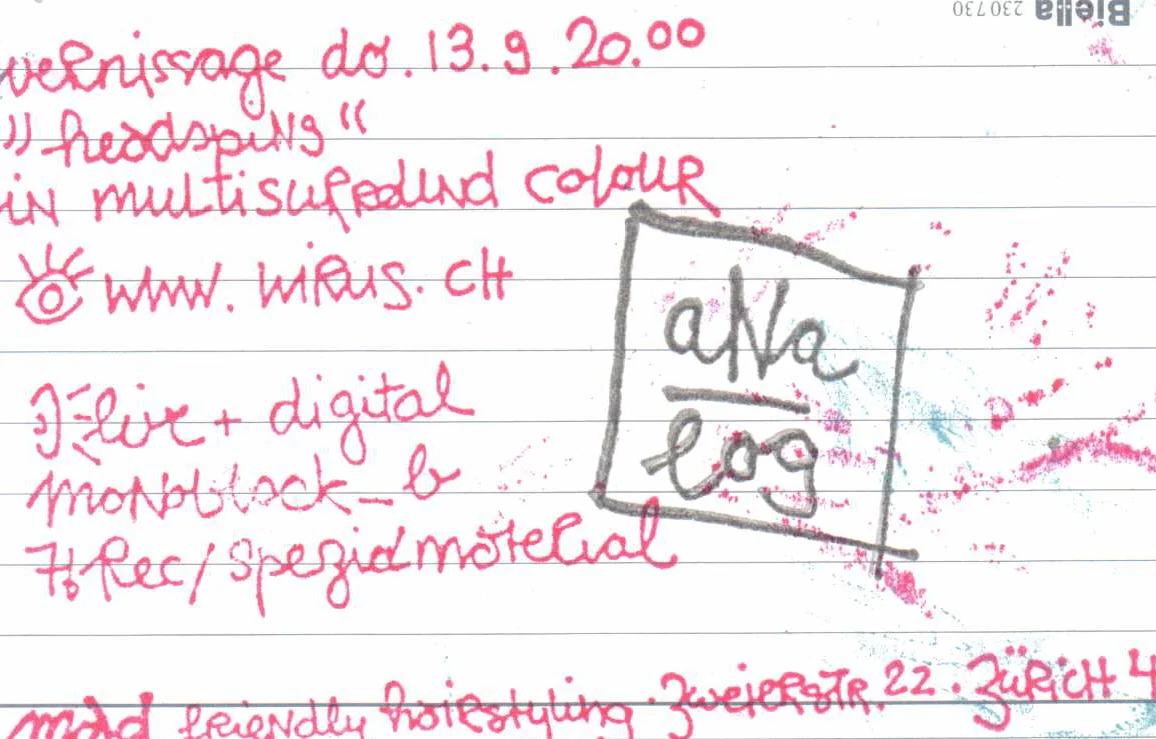 Biella 230 730
vernissage do. 13. 9. 20.00
„headspins“
in colour
www. wiRUS. CH
live + digital
moNoblock_b
Rec/Spezialmaterial
aNa
log
mad fRieNdly haiRstyling. ZweieRstR. 22. ZüRiCH 4